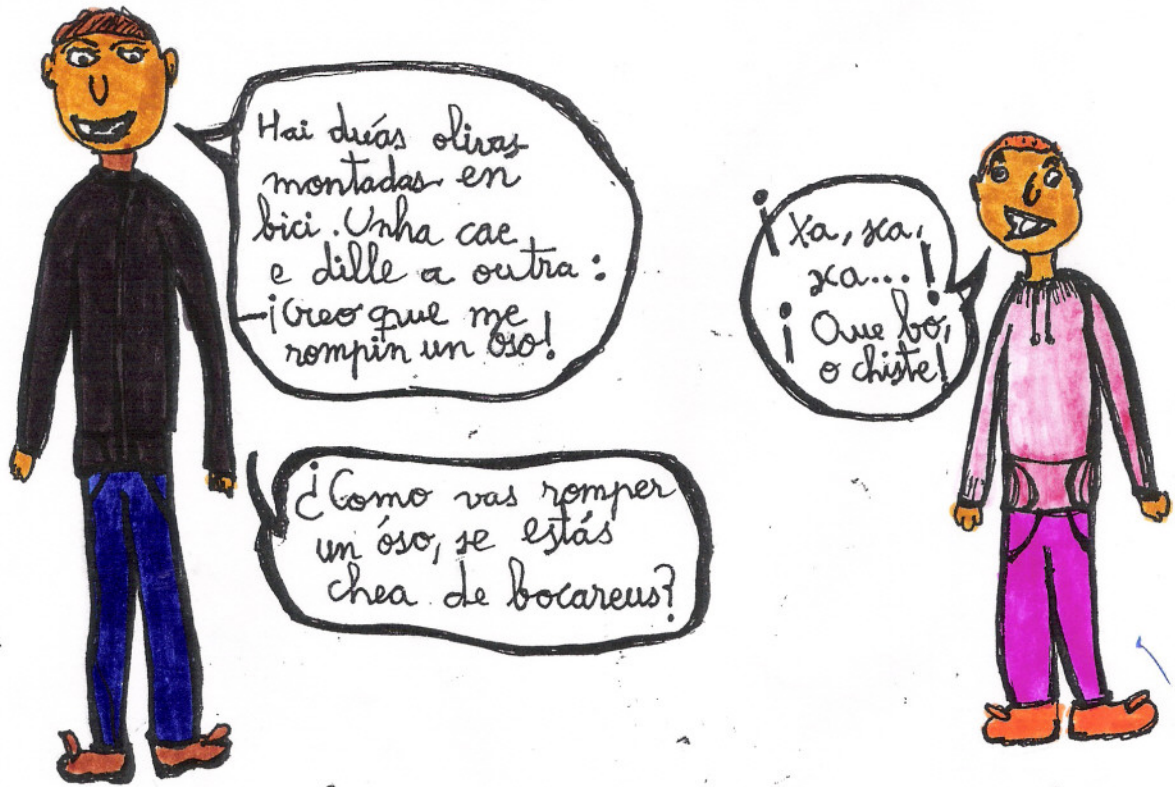 Hai dúas olivas
montadas en
bici. Unha cae
e dille a outra:
-¡Creo que me
rompin un óso!
¿Como vas romper
un óso, se estás
chea de bocareus?
¡Xa, xa,
xa...!
¡Que bo,
o chiste!